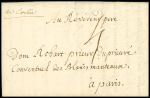 Au Reverend pere
4
Dom Robart prieur du prieuré
Conventuel des Blancs manteaux
à paris.